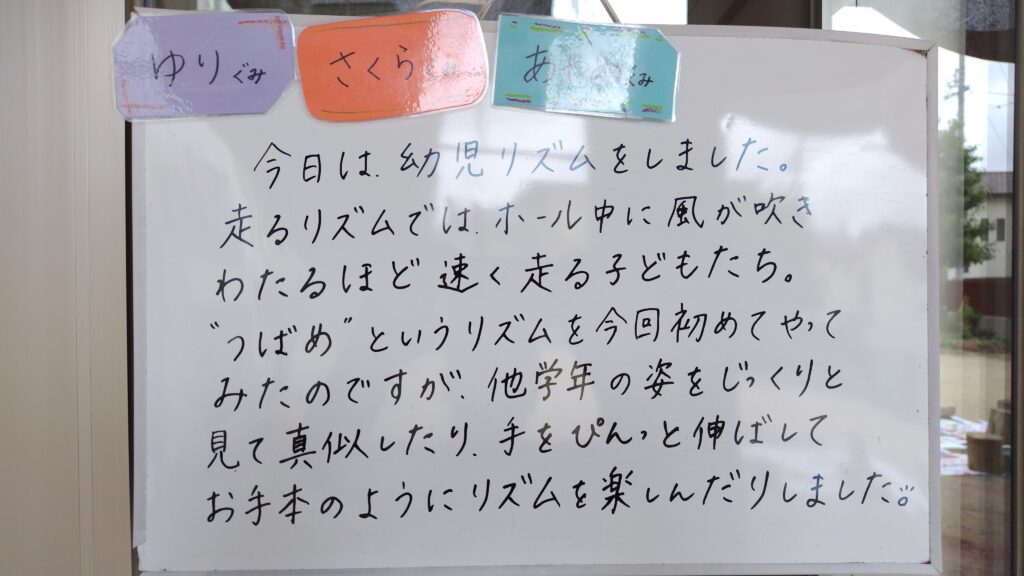 ゆりぐみ
さくらぐみ
あ ぐみ
今日は、幼児リズムをしました。
走るリズムでは、ホール中に風が吹き
わたるほど速く走る子どもたち。
"つばめ"というリズムを今回初めてやって
みたのですが、他学年の姿をじっくりと
見て真似したり、手をぴんっと伸ばして
お手本のようにリズムを楽しんだりしました。